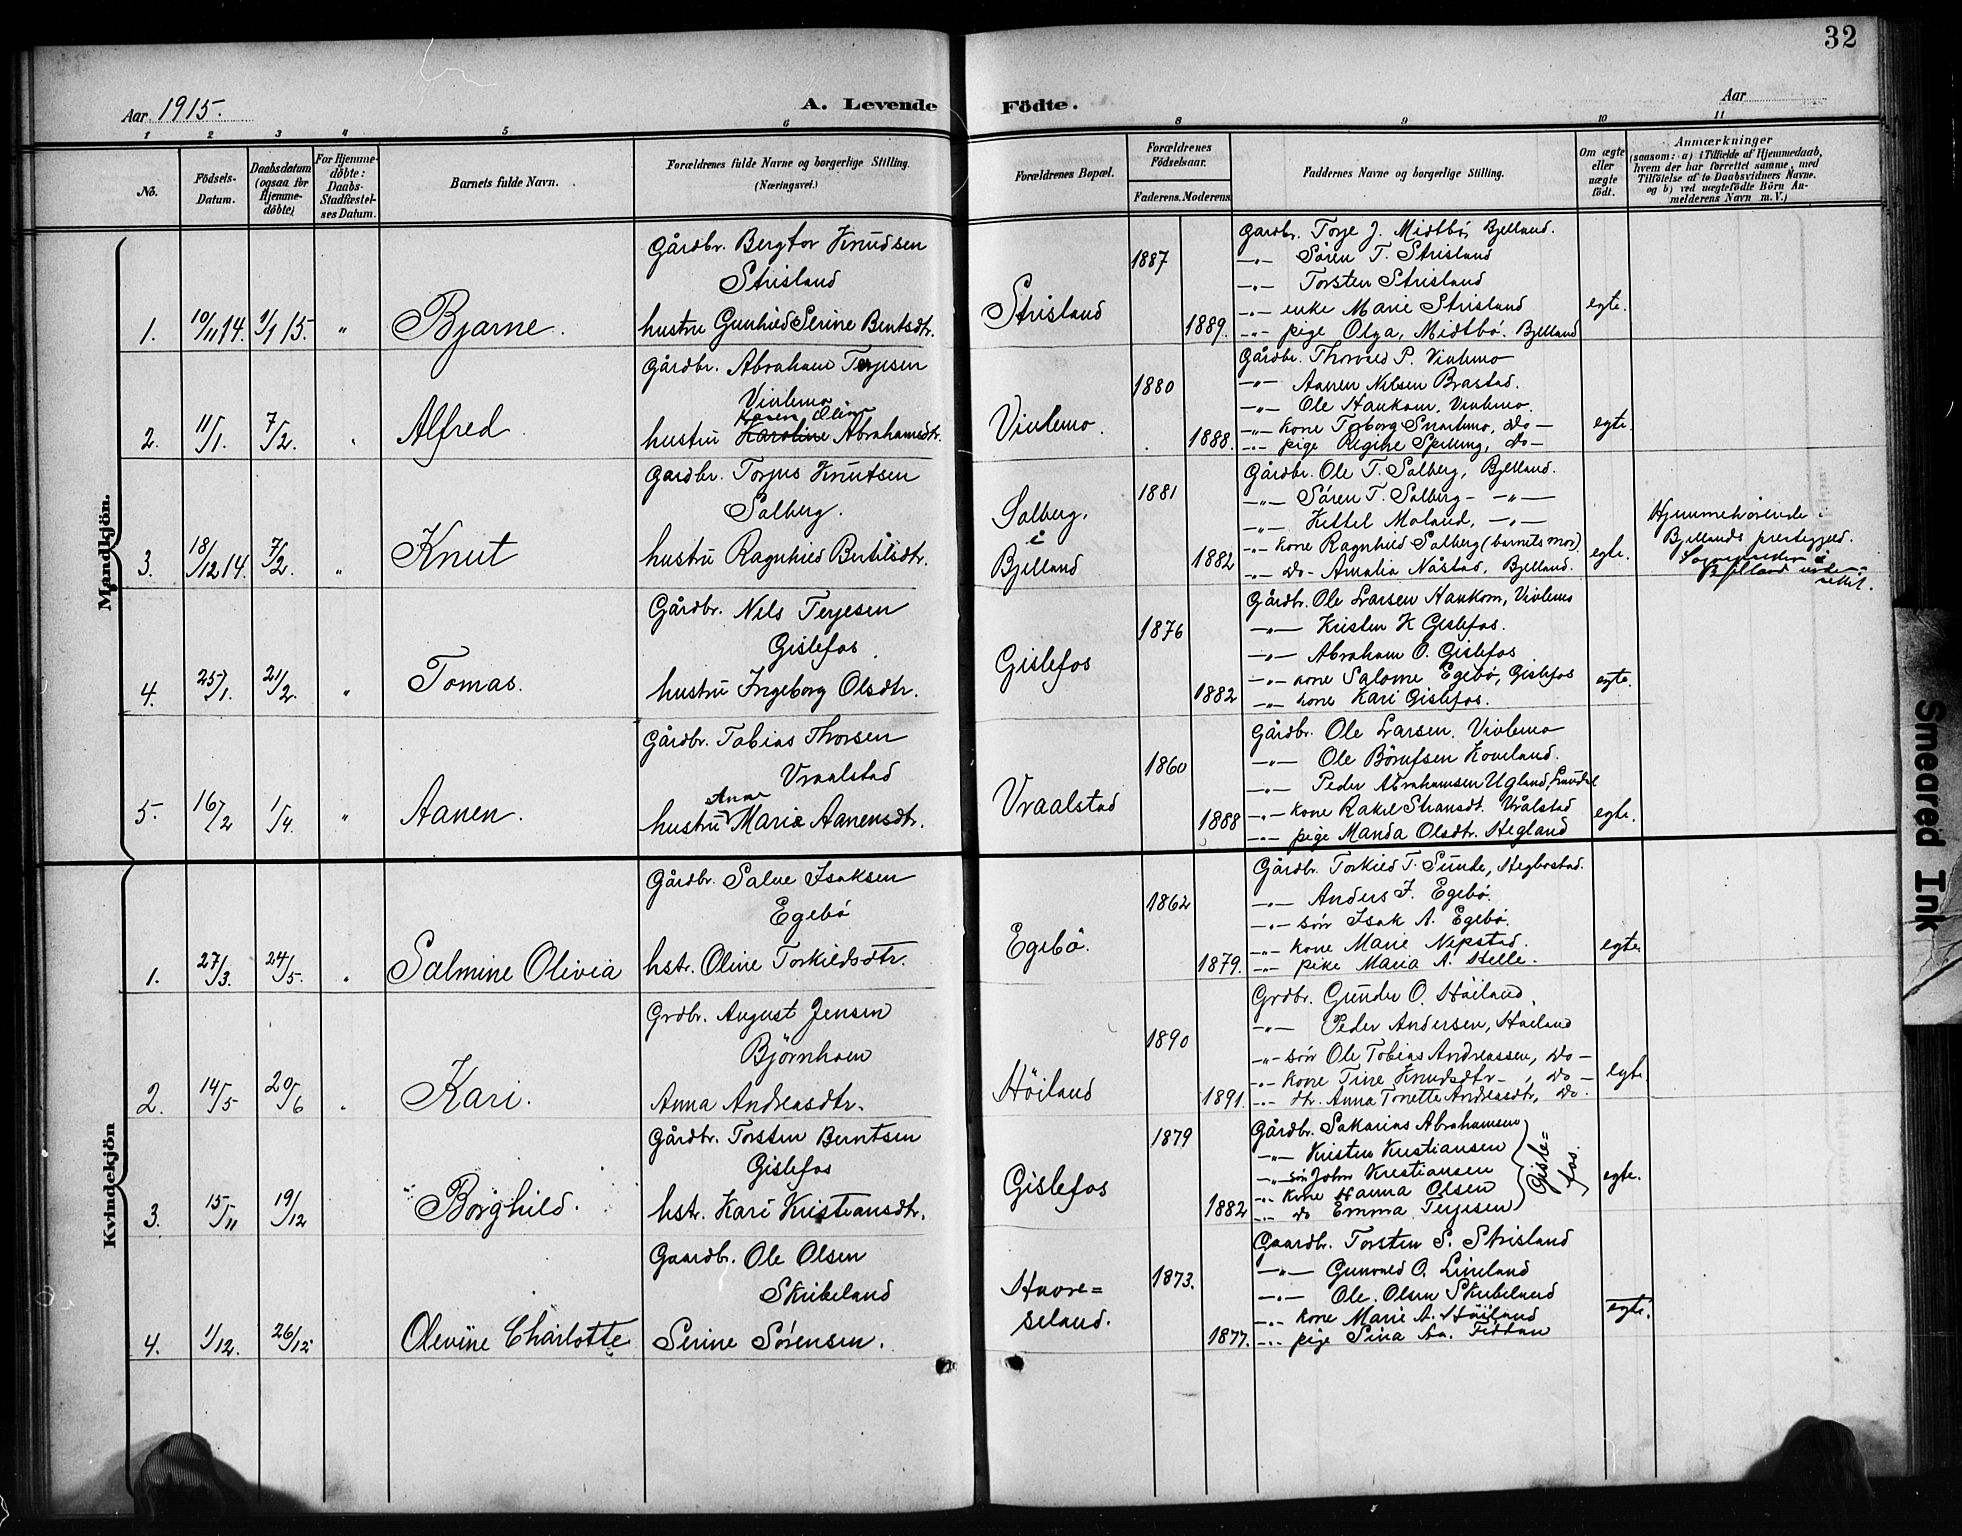 32
Aar 1915.
A. Levende Födte.
Aar
1 2 3 4 5 6 8 9 10 11
No.
Födsels-Datum.
Daabsdatum (ogsaa for Hjemmedöbte)
For Hjemmedöbte: Daabs-Stadfæstelses Datum.
Barnets fulde Navn.
Forældrenes fulde Navne og borgerlige Stilling. (Næringsvei.)
Forældrenes Bopæl.
Forældrenes Födselsaar.
Faderens. Moderens.
Faddernes Navne og borgerlige Stilling.
Om ægte eller uægte födt.
Anmærkninger
(saasom: a) i Tilfælde af Hjemmedaab, hvem der har forrettet samme, med Tilföielse af to Daabsvidners Navne. og b) ved uægtefödte Börn Anmelderens Navn m. V.)
Mandkjön.
1. 10/11 14. 1/1 15. " Bjarne.
Gårdbr. Bergtor Knudsen
Strisland
hustru Gunhild Serine Berntsdtr.
Strisland
1887
1889.
Gårdbr. Torje J. Midtbö, Bjelland.
-"- Sören T. Strisland
-"- Torsten Strisland
-"- enke Marie Strisland
-"- pige Olga, Midtbö. Bjelland
egte.
2. 11/1. 7/2. " Alfred
Gårdbr. Abraham Terjesen
Vivlemo
Karen Oline
hustru Karoline Abrahamsdtr.
Vivlemo.
1880
1888.
Gårdbr. Thorvald P. Vivlemo
-"- Aanen Nilsen Brastad.
-"- Ole Haukom, Vivlemo.
-"- kone Torborg Snartemo, do-
-"- pige Regine Spilling, do-
egte.
3. 18/12 14. 7/2. " Knut
Gårdbr. Torjus Knutsen
Solberg.
hustru Ragnhild Bertilsdtr.
Solberg,
i
Bjelland
1881
1882
Gårdbr. Ole T. Solberg, Bjelland.
-"- Sören T. Solberg- -"-
-"- Kittel Moland, -"-
-"- kone Ragnhild Solberg (barnets mor)
-"- do- Amalia Nåstad, Bjelland.
egte.
Hjemmehörende i
Bjellands prestegjeld.
Sognepresten i
Bjelland underrettet.
4. 25/1. 21/2. " Tomas.
Gårdbr. Nils Terjesen
Gislefos.
hustru Ingeborg Olsdtr.
Gislefos
1876
1882
Gårdbr. Ole Larsen Haukom, Vivlemo
-"- Kristen K Gislefos.
-"- Abraham O. Gislefos
-"- kone Salome Egebö, Gislefos
-"- kone Kari Gislefos.
egte.
5. 16/2 1/4. " Aanen.
Gårdbr. Tobias Thorsen
Vraalstad
Anne
hustru Marie Aanensdtr.
Vraalstad
1860
1888
Gårdbr. Ole Larsen. Vivlemo
-"- Ole Börufsen Konsland.
-"- Peder Abrahamsen Ugland, Laudal
-"- kone Rakel Stransdt. Vrålstad
-"- pige Manda Olsdtr. Hegland
egte.
Kvindekjön
1. 27/3. 24/5. " Salmine Olivia
Gårdbr. Salve Isaksen
Egebö
hstr. Oline Torkildsdtr.
Egebö.
1862
1879.
Gårdbr. Torkild T. Sunde, Hegbostad.
-"- Anders I. Egebö.
-"- sön Isak A. Egebö.
-"- kone Marie Nepstad.
-"- pike Maria A. Helle.
egte.
2. 14/5 20/6 " Kari.
Grdbr. August Jensen
Björnhom
Anna Andreasdtr.
Höiland
1890
1891.
Grdbr. Gunder O. Höiland.
-"- Peder Andersen, Höiland
-"- sön Ole Tobias Andreassen, do-
-"- kone Tine Knudsdtr-, do-
-"- dtr. Anna Tonette Andreasdtr, do.
egte.
3. 15/11 19/12 " Borghild.
Gårdbr. Torsten Berntsen
Gislefos
hstr. Kari Kristiansdtr.
Gislefos
1879
1882
Gårdbr. Sakarias Abrahamsen
-"- Kristen Kristiansen
-"- sön John Kristiansen
-"- kone Hanna Olsen
-"- do Emma Terjesen
Gislefos.
egte.
4. 1/12. 26/12 Olevine Charlotte
Gaardbr. Ole Olsen
Skubeland
Serine Sörensen.
Haavreseland.
1873.
1877.
Gaardbr. Torsten S. Strisland
-"- Gunvald O. Lineland
-"- Ole Olsen Skubeland
-"- kone Marie A. Höiland
-"- pige Sina Aa. Fiddan
egte.
Smeared Ink